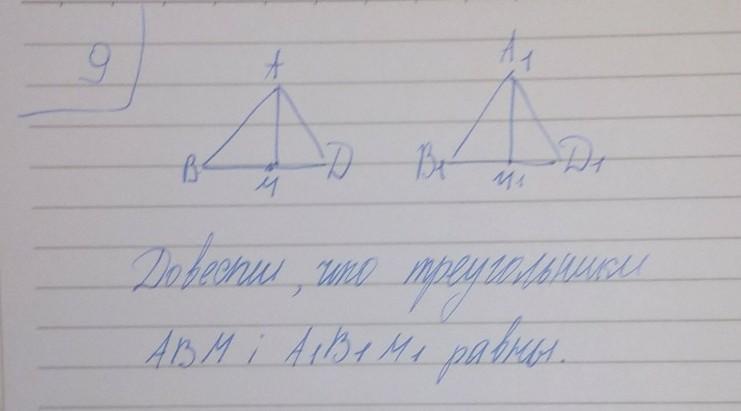 9
A
A1
B
M
D
B1
M1
D1
Довести, что треугольники
ABM і A1B1M1 равны.